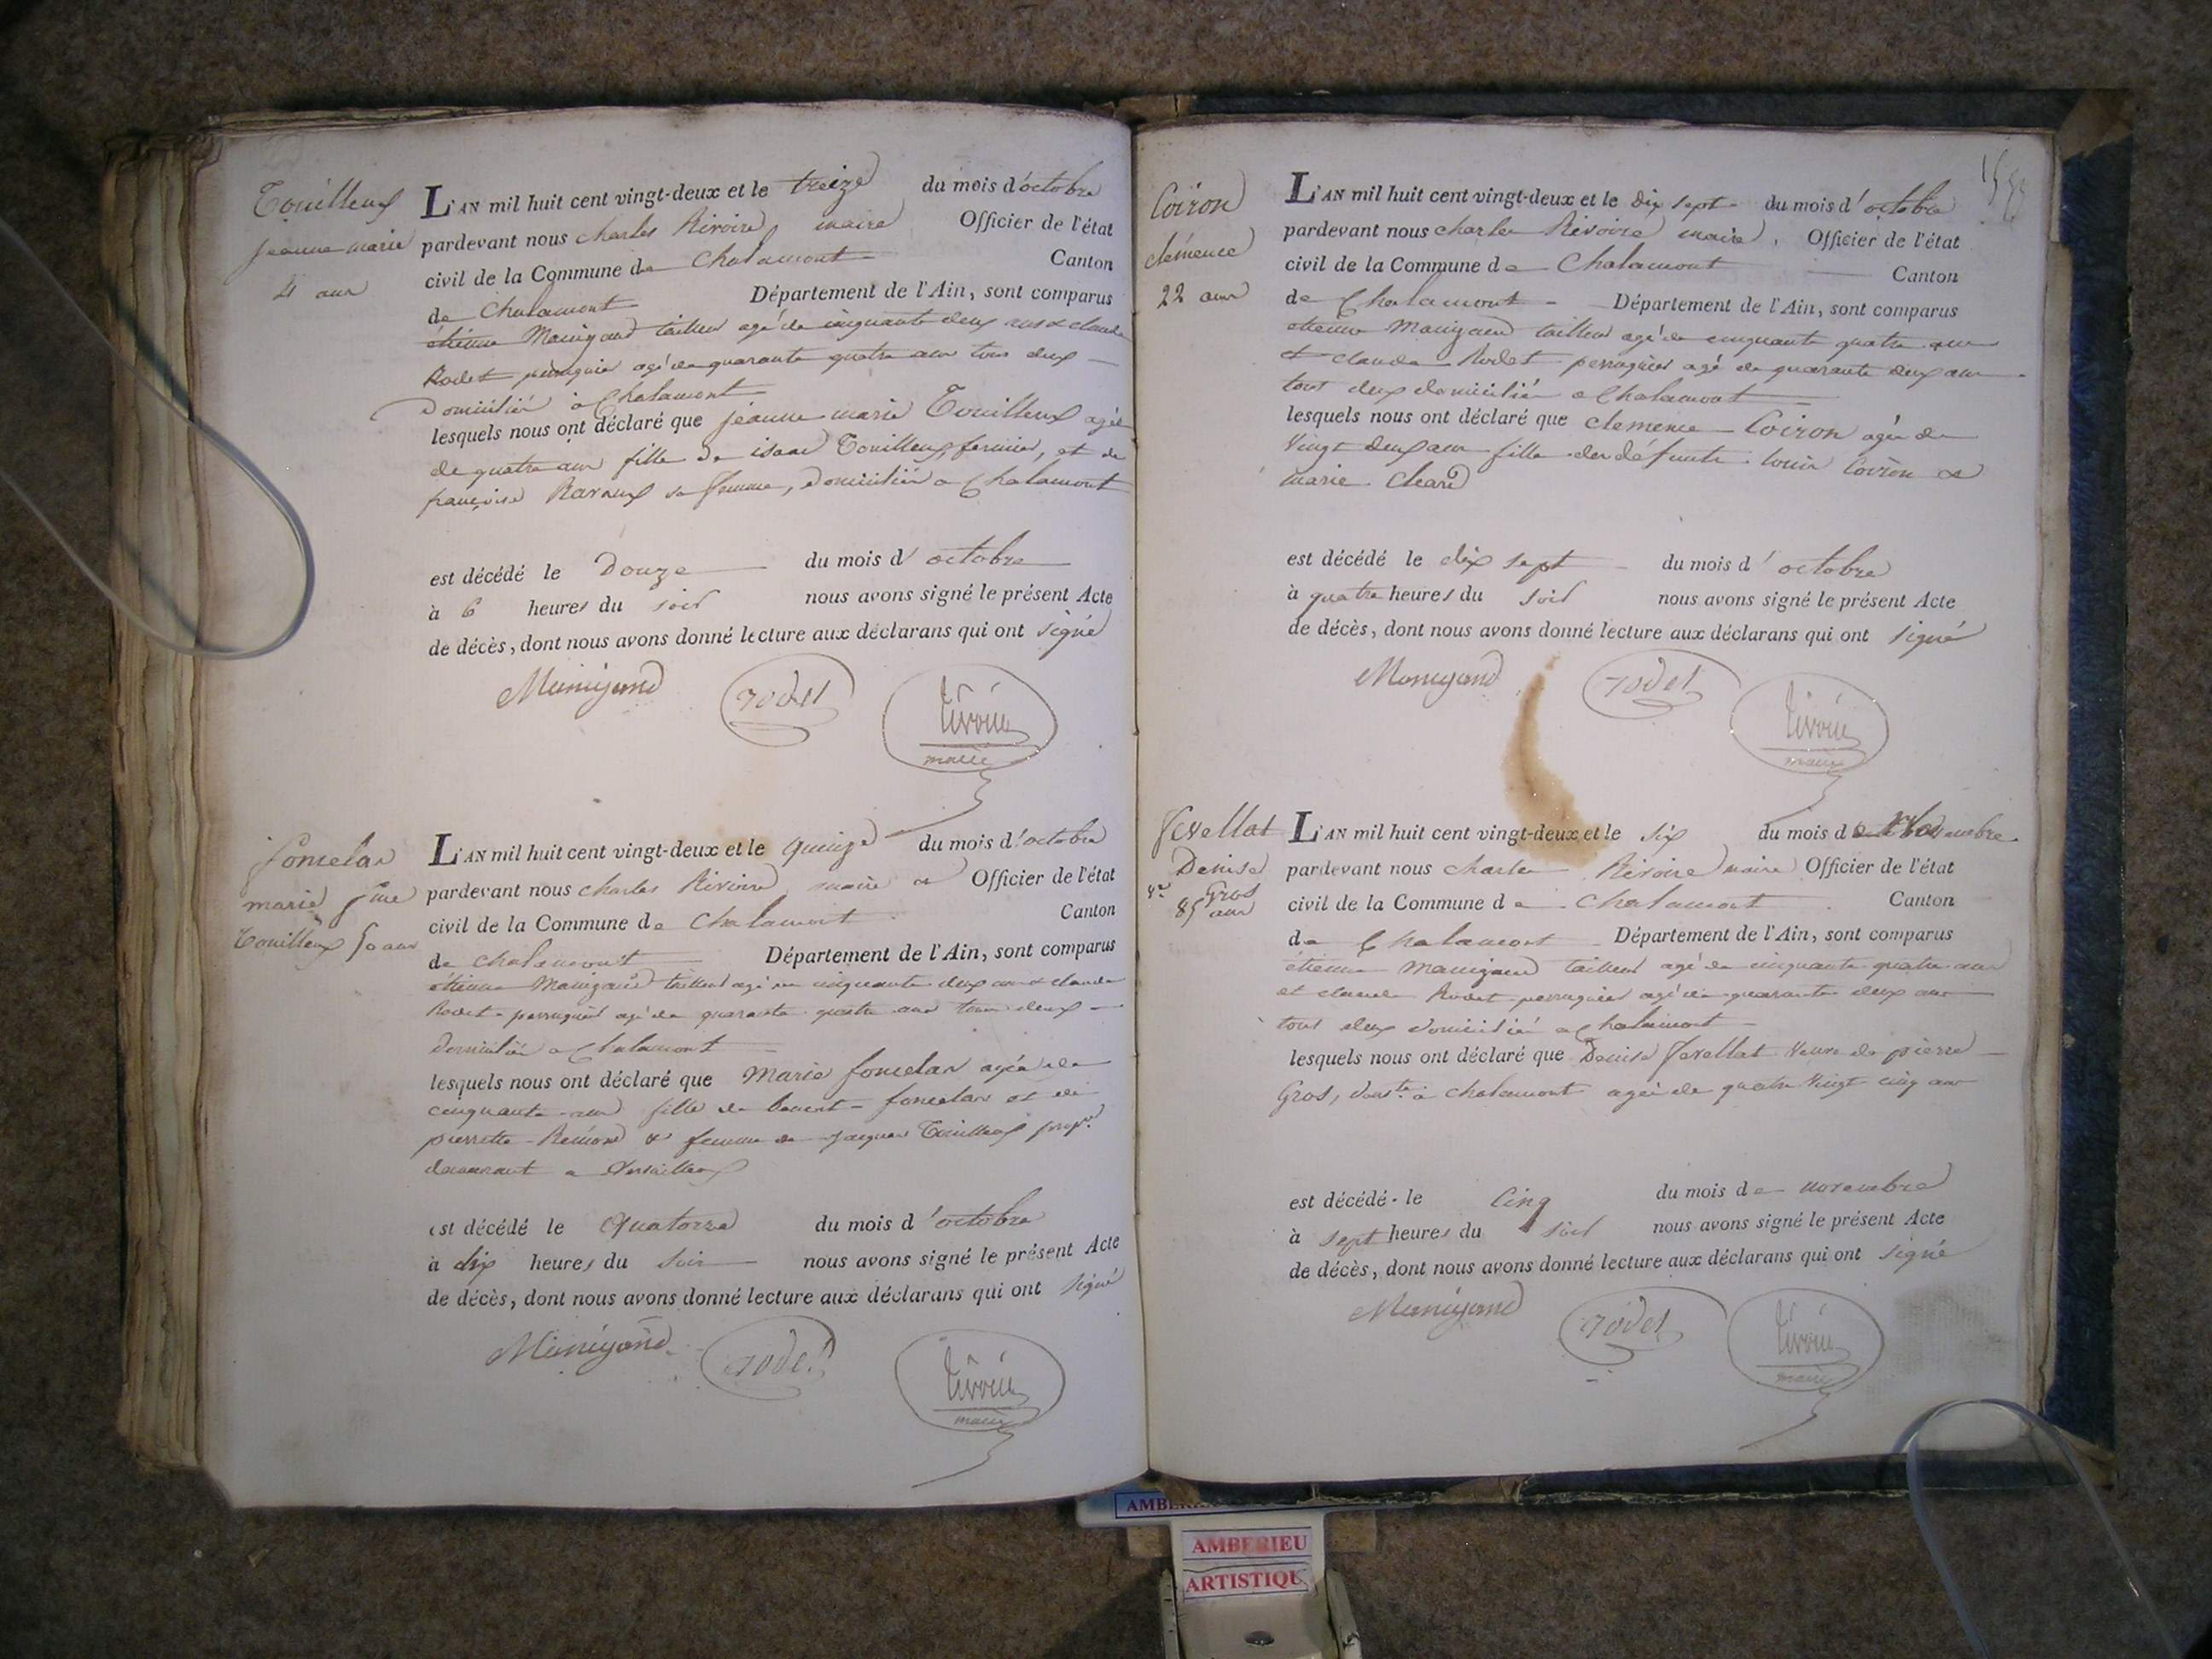 Touilleux
jeanne marie
4 ans
L'AN mil huit cent vingt-deux et le treize du mois d'octobre
pardevant nous charles Rivoire maire Officier de l'état
civil de la Commune de Chalamont Canton
de Chalamont Département de l'Ain, sont comparus
étienne Manigand tailleur agé de cinquante deux ans & claude
Rodet perruquier agé de quarante quatre ans tous deux
Domiciliés à Chalamont
lesquels nous ont déclaré que jeanne marie Touilleux agée
de quatre ans fille de isaac Touilleux fermier, et de
françoise Ravoux sa femme, domiciliés a Chalamont
est décédé le Douze du mois d'octobre
à 6 heures du soir nous avons signé le présent Acte
de décès, dont nous avons donné lecture aux déclarans qui ont signé
Manigand rodet rivoire
maire
foncelas
marie fme
Touilleux 50 ans
L'AN mil huit cent vingt-deux et le quinze du mois d'octobre
pardevant nous charles Rivoire maire Officier de l'état
civil de la Commune de Chalamont Canton
de chalamont Département de l'Ain, sont comparus
étienne Manigand tailleur agé de cinquante deux ans & claude
Rodet perruquier agé de quarante quatre ans tous deux
Domiciliés a Chalamont
lesquels nous ont déclaré que Marie foncelas agée de
cinquante ans fille de benoit foncelas et de
pierrette Rémond & femme de jacques Touilleux propre
demeurant a Versailleux
est décédé le Quatorze du mois d'octobre
à dix heures du soir nous avons signé le présent Acte
de décès, dont nous avons donné lecture aux déclarans qui ont signé
Manigand rodet rivoire
maire
Coiron
clémence
22 ans
L'AN mil huit cent vingt-deux et le dix sept du mois d'octobre
pardevant nous charles Rivoire maire, Officier de l'état
civil de la Commune de Chalamont Canton
de Chalamont Département de l'Ain, sont comparus
etienne Manigand tailleur agé de cinquante quatre ans
& claude Rodet perruquier agé de quarante deux ans
tous deux domiciliés a Chalamont
lesquels nous ont déclaré que clemence Coiron agée de
Vingt deux ans fille des défunts louis Coiron &
marie
est décédé le dix sept du mois d'octobre
à quatre heures du soir nous avons signé le présent Acte
de décès, dont nous avons donné lecture aux déclarans qui ont signé
Manigand rodet rivoire
maire
Fevellat
Denise
ve Gros
85 ans
L'AN mil huit cent vingt-deux et le six du mois de Novembre
pardevant nous charles Rivoire maire Officier de l'état
civil de la Commune de Chalamont Canton
de Chalamont Département de l'Ain, sont comparus
étienne Manigand tailleur agé de cinquante quatre ans
et claude Rodet perruquier agé de quarante deux ans
tous deux domiciliés a Chalamont
lesquels nous ont déclaré que Denise Fevellat Veuve de pierre
Gros, domte à Chalamont agée de quatre Vingt cinq ans
est décédé le Cinq du mois de novembre
à sept heures du soir nous avons signé le présent Acte
de décès, dont nous avons donné lecture aux déclarans qui ont signé
Manigand rodet rivoire
maire
AMBERIEU
ARTISTIQU